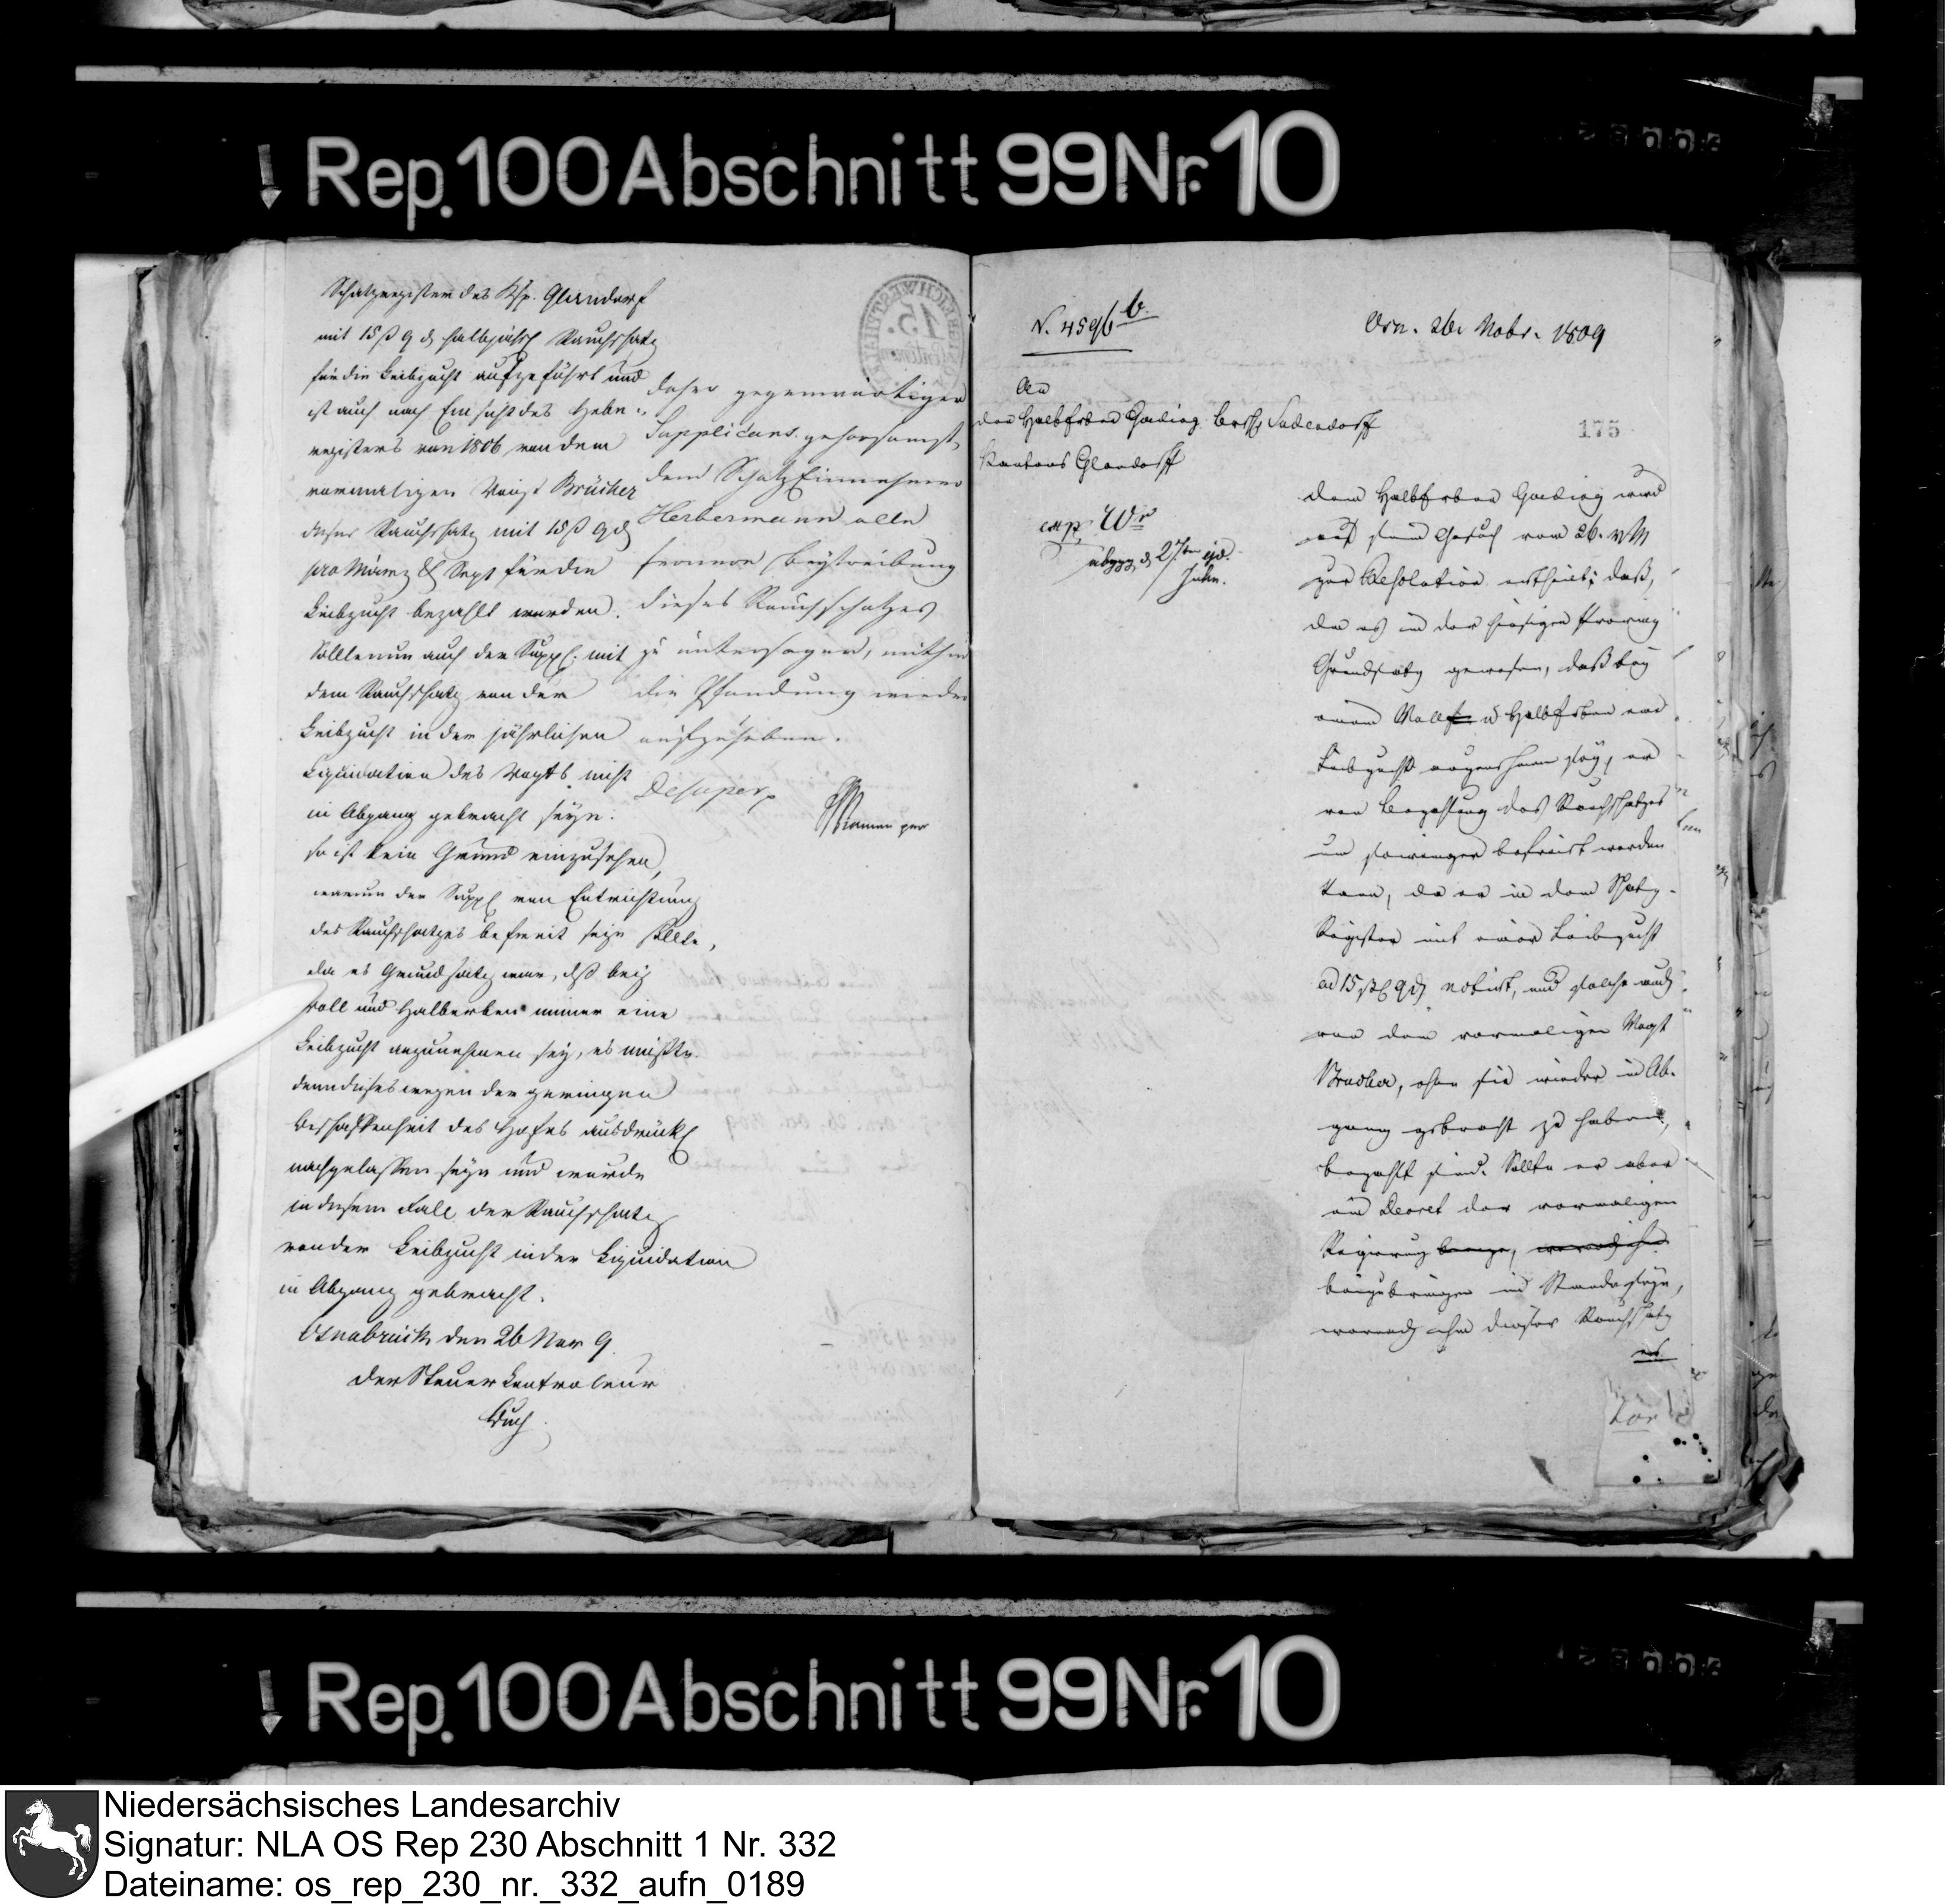 Rep. 100 Abschnitt 99 Nr. 10
Schatzregister des Ksp. Glandorf
mit 15 ß 9 d halbjährl Rauchschatz
für die Leibzucht aufgeführt und
ist auch nach Einsicht des Hebe-
registers von 1806 von dem
vormaligen Voigt Brücher
dieser Rauchschatz mit 15 ß 9 d
pro März & Sept für die
Leibzucht bezahlt worden.
Sollte nun auch der Suppl. mit
dem Rauchschatz von der
Leibzucht in der jährlichen
Liquidation des Vogts nicht
in Abgang gebracht seyn:
so ist kein Grund einzusehen,
warum der Suppl von Entrichtung
des Rauchschatzes befreit seyn sollte,
da es Grundsatz war, dß bey
voll und Halberben immer eine
Leibzucht anzunehmen sey, es müßte
denn dieses wegen der geringen
Beschaffenheit des Hofes ausdrückl
nachgelassen seyn und wurde
in diesem Fall der Rauchschatz
von der Leibzucht in der Liquidation
in Abgang gebracht.
Osnabrück den 26 Nov 9.
Der Steuer Controleur
Buch
daher gegenwärtigen
Supplicans gehorsamst,
dem Schatz Einnehmer
Herbermann alle
fernere Beytreibung
dieses Rauchschatzes
zu untersagen, mithin
die Pfandung wieder
aufzuheben.
Desuper
15.
N. 4596 b.
Osn. 26. Nobr. 1809
An
den Halberben Goeding Brsch. Sudendorff
Kantons Glandorff
175
exp. Wr
abgeg. d 27ten ejd.
Dem Halberben Goeding wird
auf sein Gesuch vom 26. v M
zur Resolution ertheilt; daß,
da es in der hiesigen Provinz
Grundsatz gewesen, daß bey
einem Voll u Halberben eine
Leibzucht anzunehmen sey, er
von Bezahlung des Rauchschatzes
um so weniger befreit werden
kann, da er in dem Schatz-
Register mit einer Leibzucht
ad 15 ßl 9 d notirt, und solche auch
von dem vormaligen Vogt
Brücher, ohne sie wieder in Ab-
gang gebracht zu haben,
bezahlt sind. Sollte er aber
ein Decret der vormaligen
Regierung
beyzubringen im Stande seyn,
wornach ihm dieser Rauchschatz
Rep. 100 Abschnitt 99 Nr. 10
Niedersächsisches Landesarchiv
Signatur: NLA OS Rep 230 Abschnitt 1 Nr. 332
Dateiname: os_rep_230_nr._332_aufn_0189